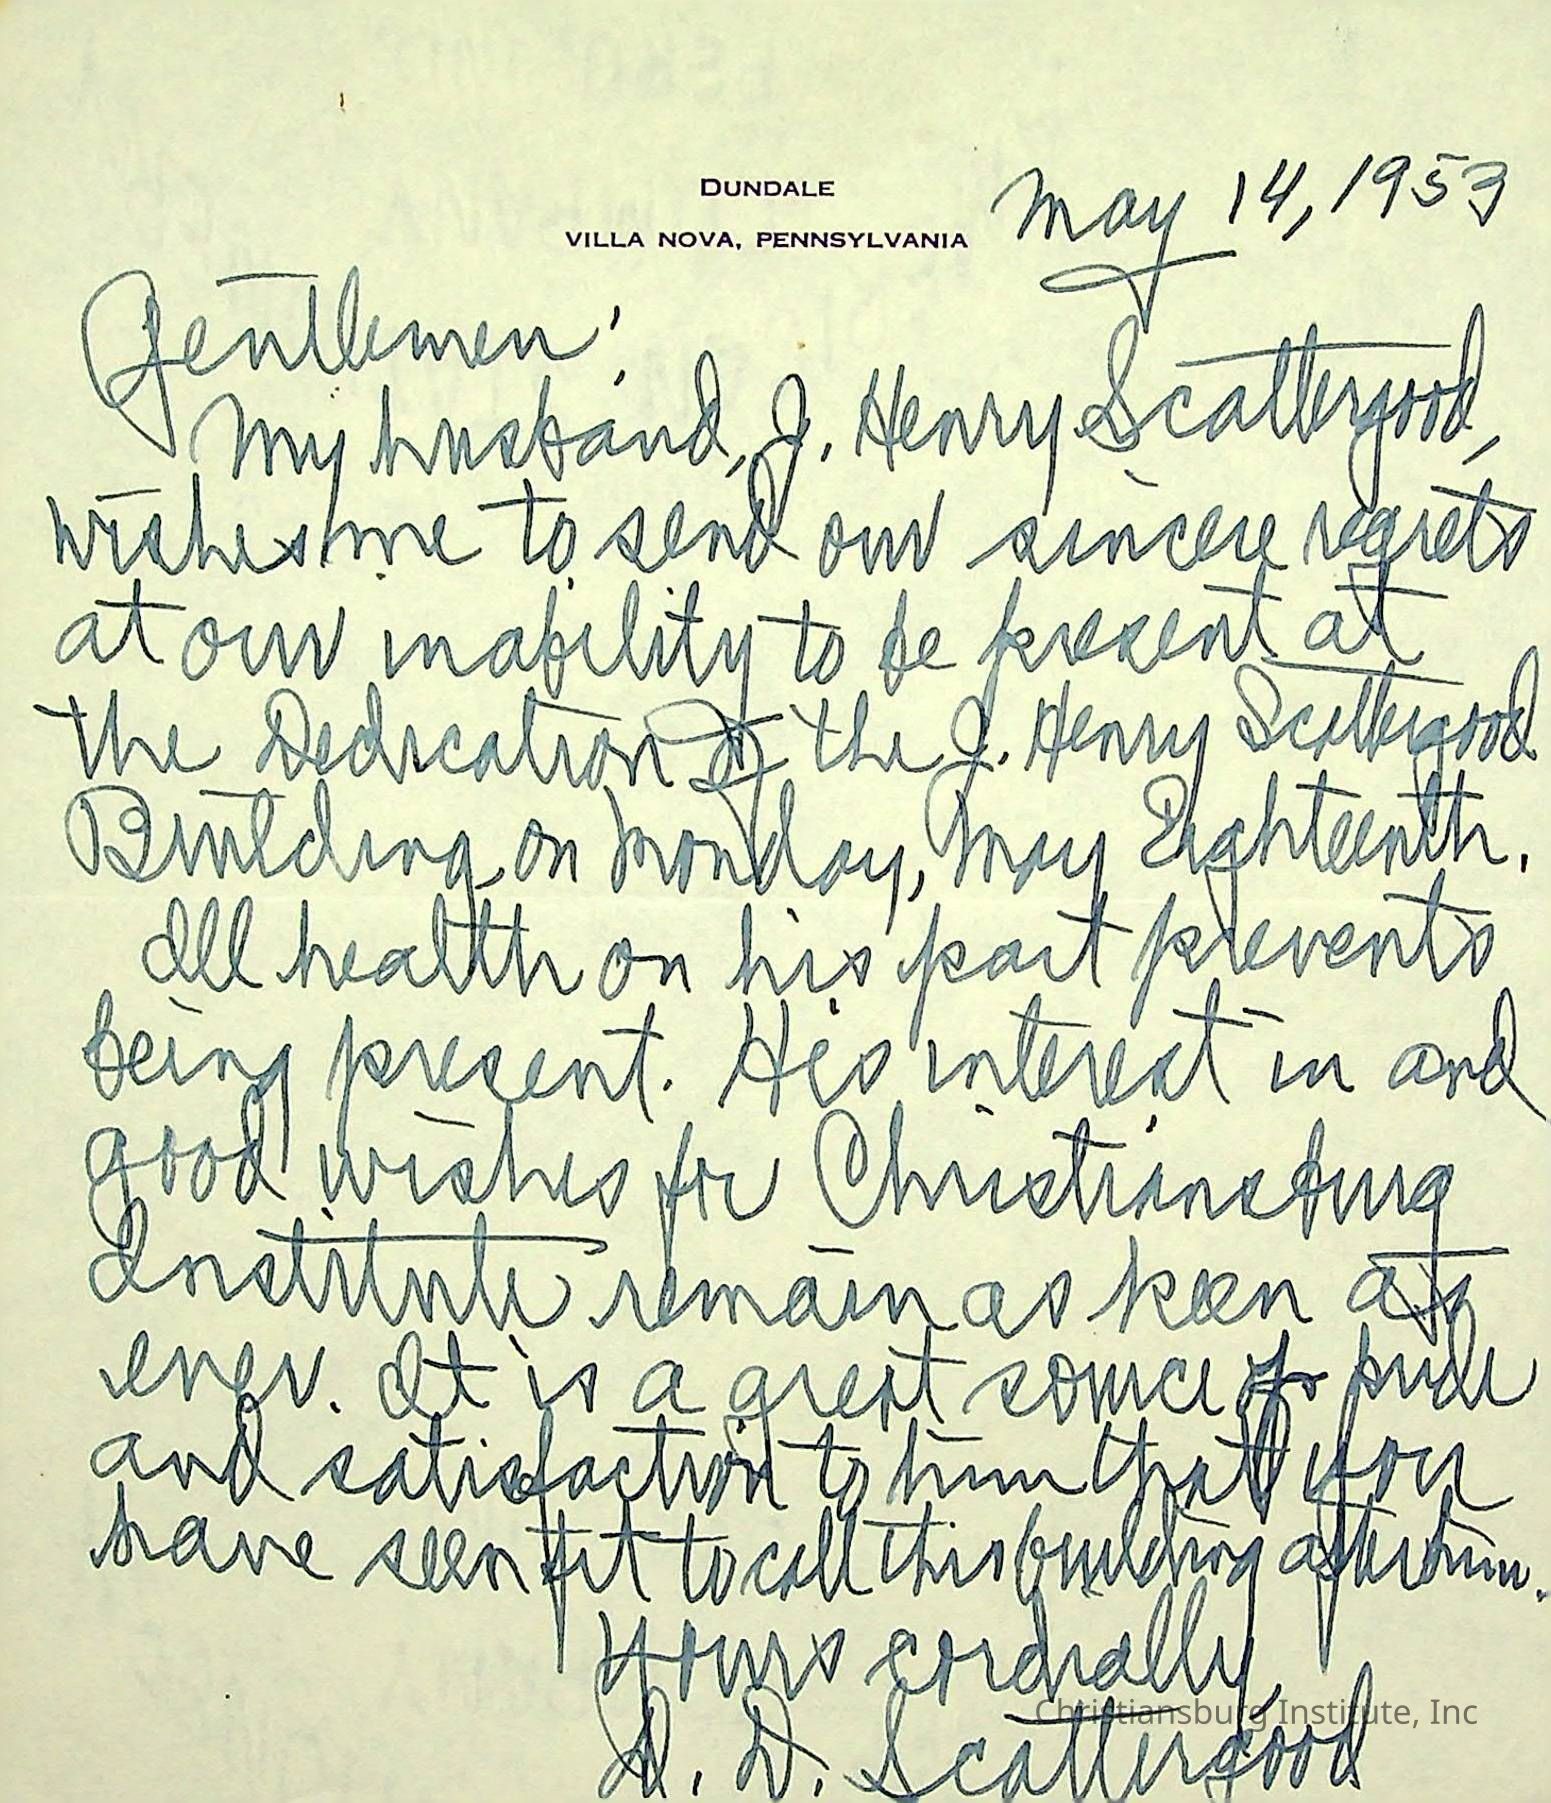 DUNDALE
VILLA NOVA, PENNSYLVANIA
May 14, 1953
Gentlemen:
My husband, J. Henry Scattergood,
wishes me to send our sincere regrets
at our inability to be present at
the Dedication of the J. Henry Scattergood
Building on Monday, May Eighteenth.
Ill health on his part prevents
being present. His interest in and
good wishes for Christiansburg
Institute remain as keen as
ever. It is a great source of pride
and satisfaction to him that you
have seen fit to call this building after him.
Yours cordially,
A. D. Scattergood
Christiansburg Institute, Inc